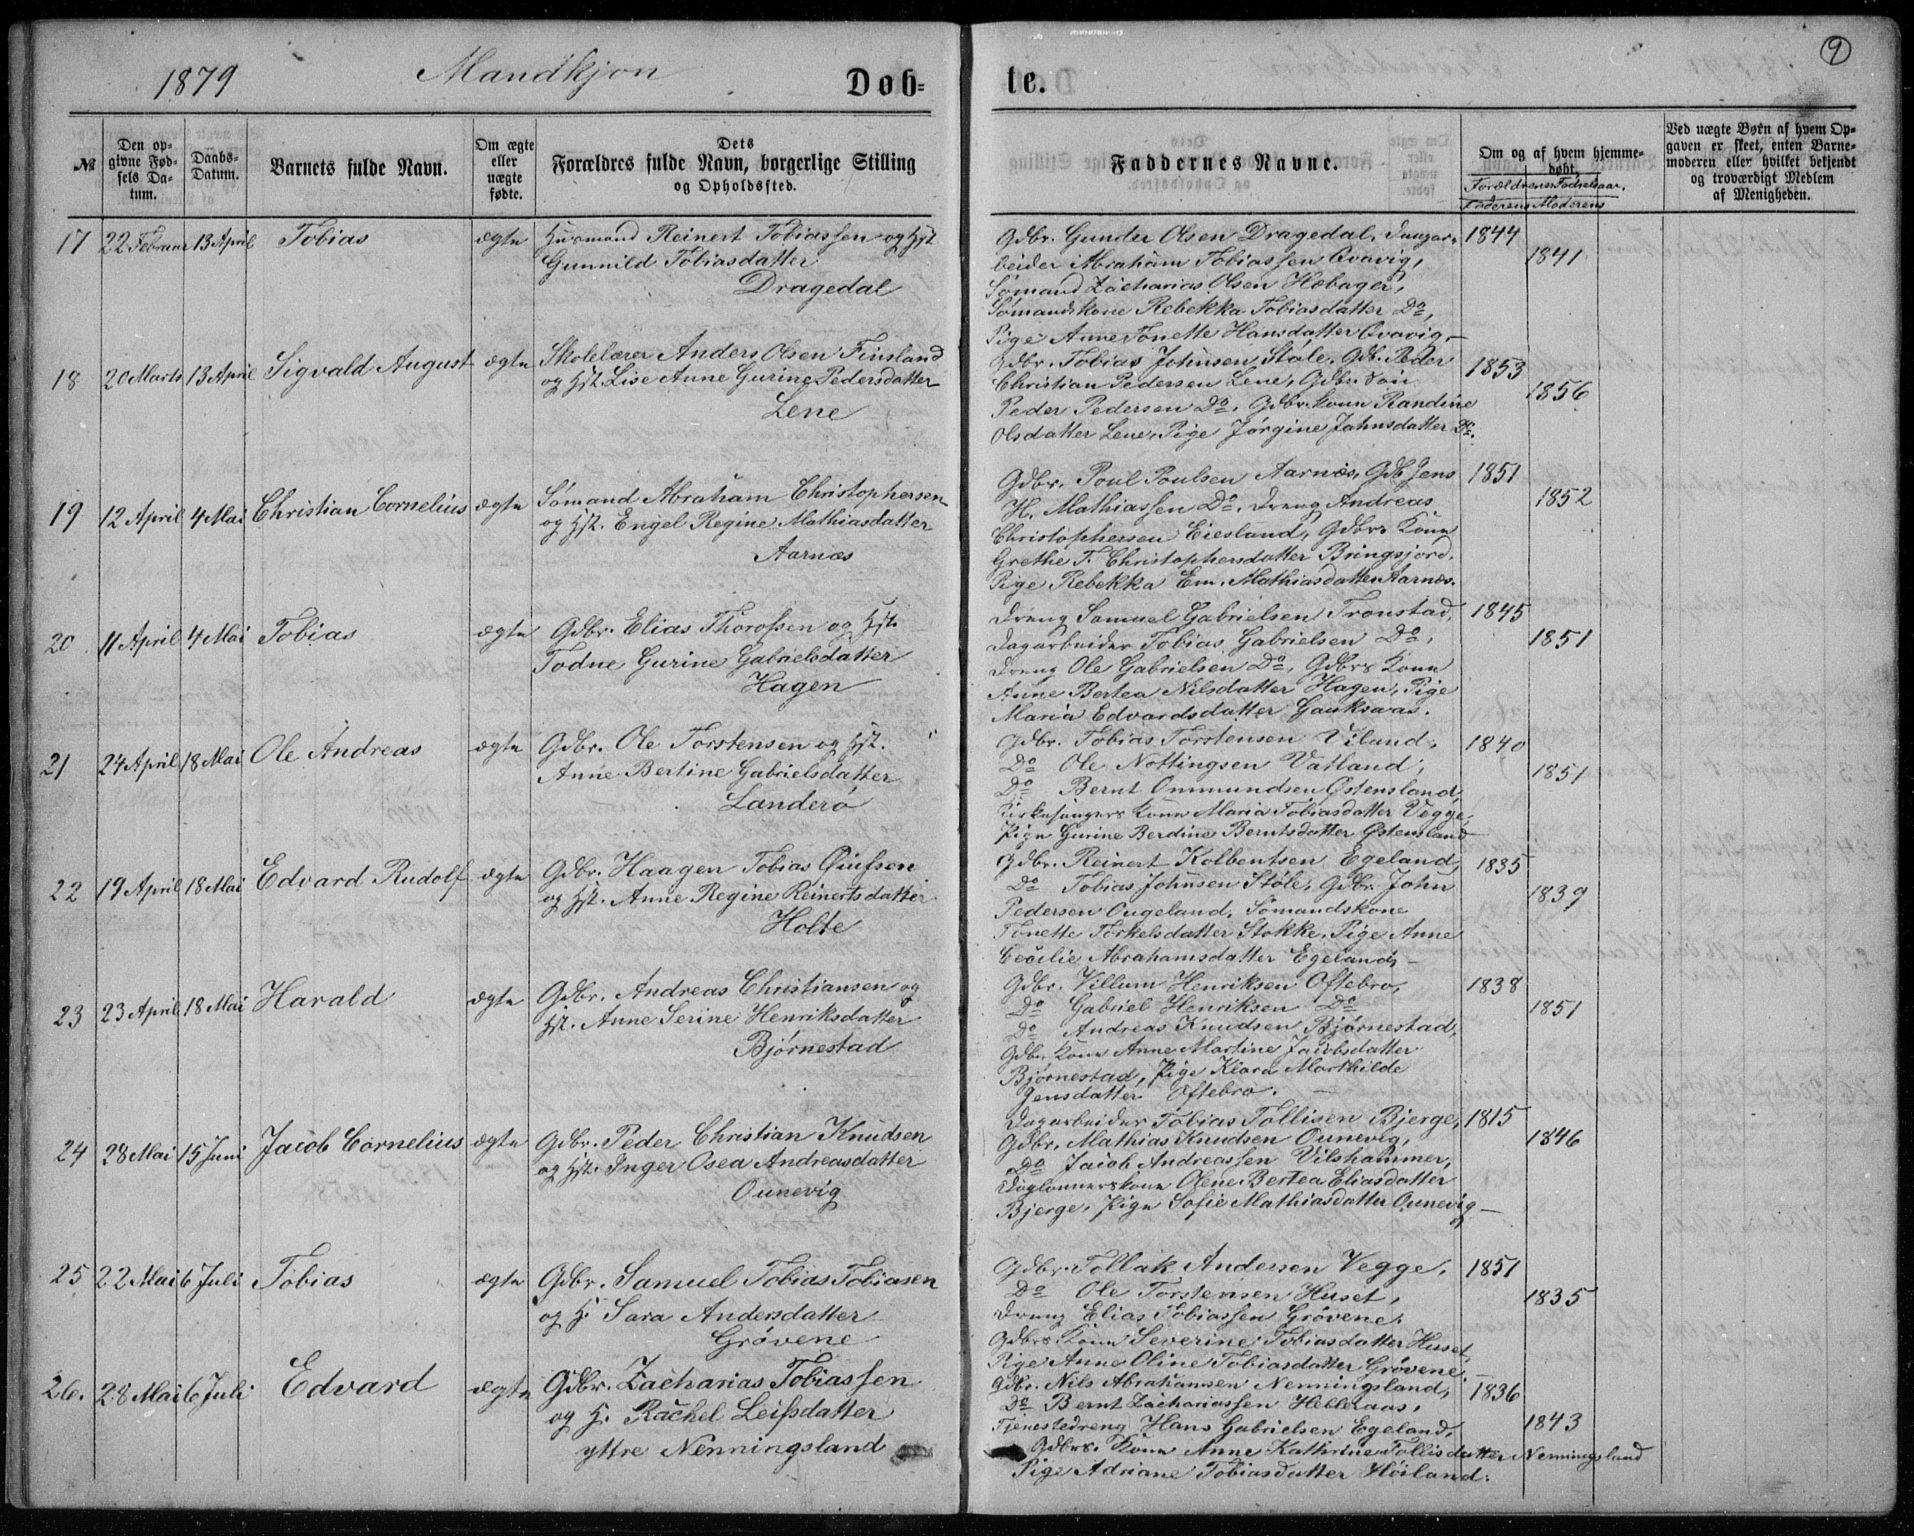 1879 Mandkjøn Døb-
№
Den op-
givne Fød-
sels Da-
tum.
Daabs-
Datum.
Barnets fulde Navn.
Om ægte
eller
uægte
fødte.
Dets
Forældres fulde Navn, borgerlige Stilling
og Opholdssted.
17 22 Februar 13 April Tobias ægte Husmand Reinert Tobiassen og Hst
Gunnild Tobiasdatter
Dragedal
18 20 Marts 13 April Sigvald August ægte Skolelærer Anders Olsen Finsland
og Hst. Lise Anne Gurine Pedersdatter
Lene
19 12 April 4 Mai Christian Cornelius ægte Sømand Abraham Christophersen
og Hst. Engel Regine Mathiasdatter
Aarnæs
20 11 April 4 Mai Tobias ægte Gdbr. Elias Thorossen og Hst.
Todne Gurine Gabrielsdatter
Hagen
21 24 April 18 Mai Ole Andreas ægte Gdbr. Ole Torstensen og Hst.
Anne Bertine Gabrielsdatter
Landerö
22 19 April 18 Mai Edvard Rudolf ægte Gdbr. Haagen Tobias
og Hst. Anne Regine Reinertsdatter
Holte
23 23 April 18 Mai Harald ægte Gdbr. Andreas Christiansen og
Hst. Anne Serine Henriksdatter
Bjørnestad
24 28 Mai 15 Juni Jacob Cornelius ægte Gdbr. Peder Christian Knudsen
og Hst. Inger Osea Andreasdatter
Ounevig
25 22 Mai 6 Juli Tobias ægte Gdbr. Samuel Tobias Tobiasen
og H. Sara Andersdatter
Grövene
26. 28 Mai 6 Juli Edvard ægte Gdbr. Zacharias Tobiassen
og H. Rachel Leifsdatter
yttre Nenningsland
te. 9
Faddernes Navne.
Om og af hvem hjemme-
døbt.
Forældrenes Fødselsaar.
Faderens Moderens
Ved uægte Børn af hvem Op-
gaven er skeet, enten Barne-
moderen eller hvilket bekjendt
og troværdigt Medlem
af Menigheden.
Gdbr. Gunder Olsen Dragedal, Dagar- 1844
beider Abraham Tobiassen Qvavig, 1841
Sømand Zacharias Olsen Hæbager,
Sømandskone Rebekka Tobiasdatter Do,
Pige Anne Tonette Hansdatter Qvavig.
Gdbr. Tobias Johnsen Støle, Gdb. Peder 1853
Christian Pedersen Lene, Gdbr. Søn 1856
Peder Pedersen Do, Gdbr. Kone Randine
Olsdatter Lene, Pige Jørgine Jahnsdatter Do.
Gdbr. Poul Poulsen Aarnæs, Gdb. Jens 1851
H. Mathiassen Do. Dreng Andreas 1852
Christophersen Eiesland, Gdbrs Kone
Grethe T. Christophersdatter Bringsjord.
Pige Rebekka Em. Mathiasdatter Aarnæs.
Dreng Samuel Gabrielsen Tronstad, 1845
Dagarbeider Tobias Gabrielsen Do, 1851
Dreng Ole Gabrielsen Do, Gdbrs Kone
Anne Bertea Nilsdatter Hagen, Pige
Maria Edvardsdatter Gauksaas.
Gdbr. Tobias Torstensen Viland, 1840
Do Ole Nottingsen Vatland, 1851
Do Bernt Ommundsen Østensland,
Kirkesangers Kone Maria Tobiasdatter Vegge,
Pige Gurine Berdine Berntsdatter Østensland
Gdbr. Reinert Kolbentsen Egeland, 1835
Do Tobias Johnsen Støle, Gdbr. John 1839
Pedersen Ougeland, Sømandskone
Tonette Torkelsdatter Stokke, Pige Anne
Cecilie Abrahamsdatter Egeland,
Gdbr. Villum Henriksen Oftebro, 1838
Do Gabriel Henriksen Do 1851
Do Andreas Knudsen Bjørnestad,
Gdbr. Kone Anne Martine Jacobsdatter
Bjørnestad, Pige Klara Marthilde
Jensdatter Oftebro.
Dagarbeider Tobias Tollisen Bjerge, 1815
Gdbr. Mathias Knudsen Ounevig, 1846
Do Jacob Andreassen Vilshammer,
Daglønnerskone Olene Bertea Eliasdatter
Bjerge, Pige Sofie Mathiasdatter Ounevig
Gdbr. Tollak Andersen Vegge, 1851
Do Ole Torstensen Huset, 1835
Dreng Elias Tobiassen Grövene,
Gdbrs Kone Severine Tobiasdatter Huset,
Pige Anne Oline Tobiasdatter Grövene.
Gdbr. Nils Abrahamsen Nenningsland, 1836
Do Bernt Zachariassen Helleraas, 1843
Tjenestedreng Hans Gabrielsen Egeland,
Gdbrs. Kone Anne Kathrine Tollisdatter Nenningsland
Pige Adriane Tobiasdatter Høiland.